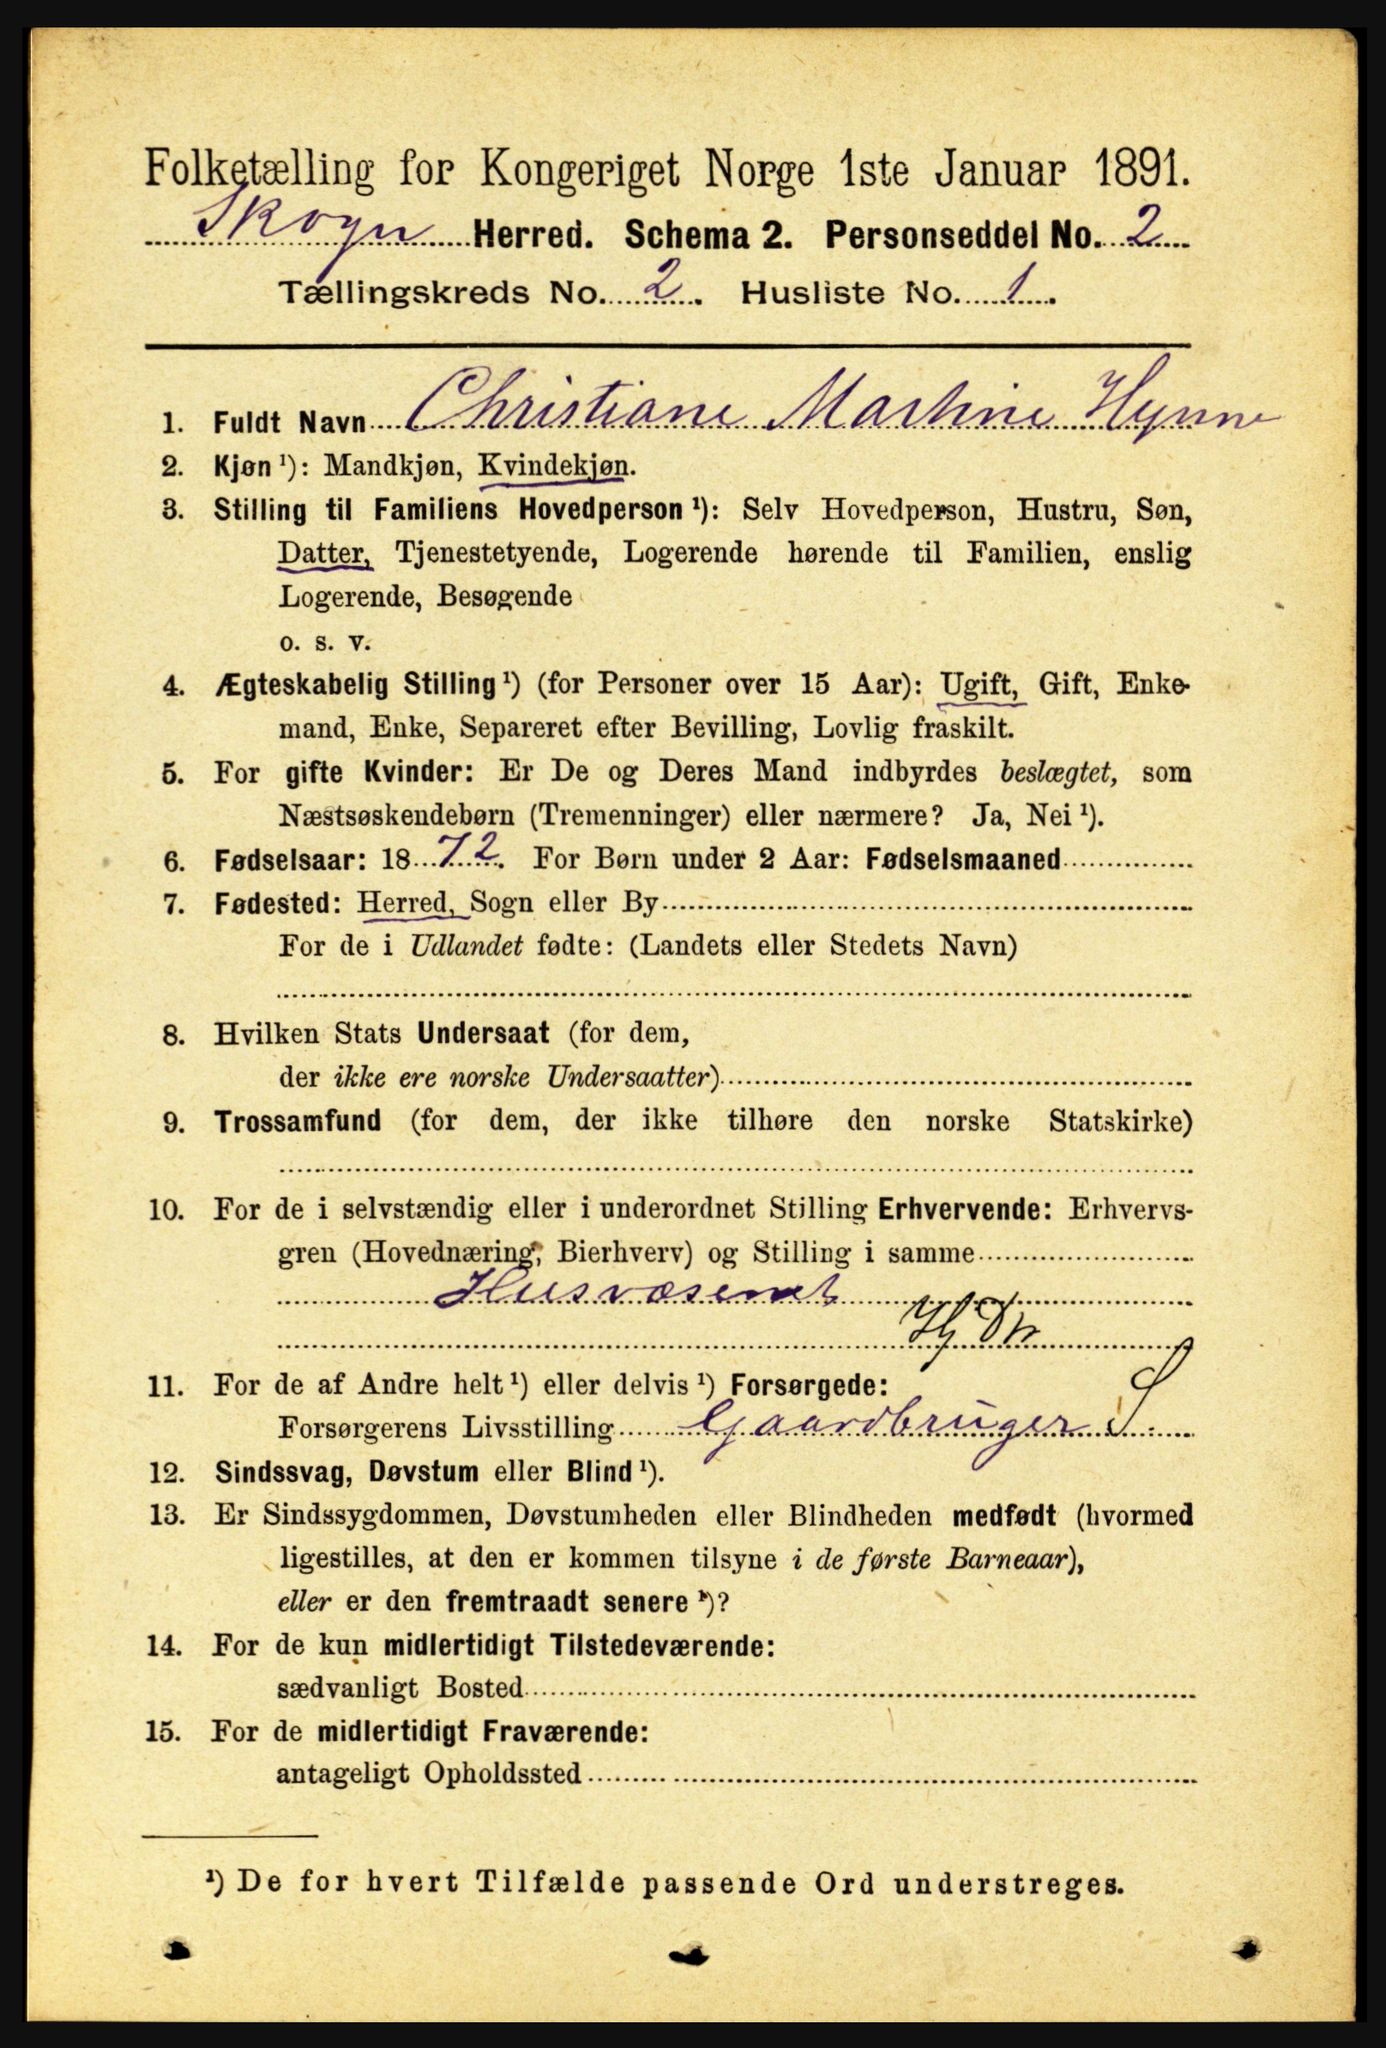 Folketælling for Kongeriget Norge 1ste Januar 1891.
Skogn Herred. Schema 2. Personseddel No. 2
Tællingskreds No. 2. Husliste No. 1.
1. Fuldt Navn Christiane Martine Hynne
2. Kjøn ¹): Mandkjøn, Kvindekjøn.
3. Stilling til Familiens Hovedperson ¹): Selv Hovedperson, Hustru, Søn,
Datter, Tjenestetyende, Logerende hørende til Familien, enslig
Logerende, Besøgende
o. s. v.
4. Ægteskabelig Stilling ¹) (for Personer over 15 Aar): Ugift, Gift, Enke-
mand, Enke, Separeret efter Bevilling, Lovlig fraskilt.
5. For gifte Kvinder: Er De og Deres Mand indbyrdes beslægtet, som
Næstsøskendebørn (Tremenninger) eller nærmere? Ja, Nei ¹).
6. Fødselsaar: 1872. For Børn under 2 Aar: Fødselsmaaned
7. Fødested: Herred, Sogn eller By
For de i Udlandet fødte: (Landets eller Stedets Navn)
8. Hvilken Stats Undersaat (for dem,
der ikke ere norske Undersaatter)
9. Trossamfund (for dem, der ikke tilhøre den norske Statskirke)
10. For de i selvstændig eller i underordnet Stilling Erhvervende: Erhvervs-
gren (Hovednæring, Bierhverv) og Stilling i samme
Husvæsenet
11. For de af Andre helt ¹) eller delvis ¹) Forsørgede:
Forsørgerens Livsstilling Gaardbruger S.
12. Sindssvag, Døvstum eller Blind ¹).
13. Er Sindssygdommen, Døvstumheden eller Blindheden medfødt (hvormed
ligestilles, at den er kommen tilsyne i de første Barneaar),
eller er den fremtraadt senere ¹)?
14. For de kun midlertidigt Tilstedeværende:
sædvanligt Bosted
15. For de midlertidigt Fraværende:
antageligt Opholdssted
¹) De for hvert Tilfælde passende Ord understreges.